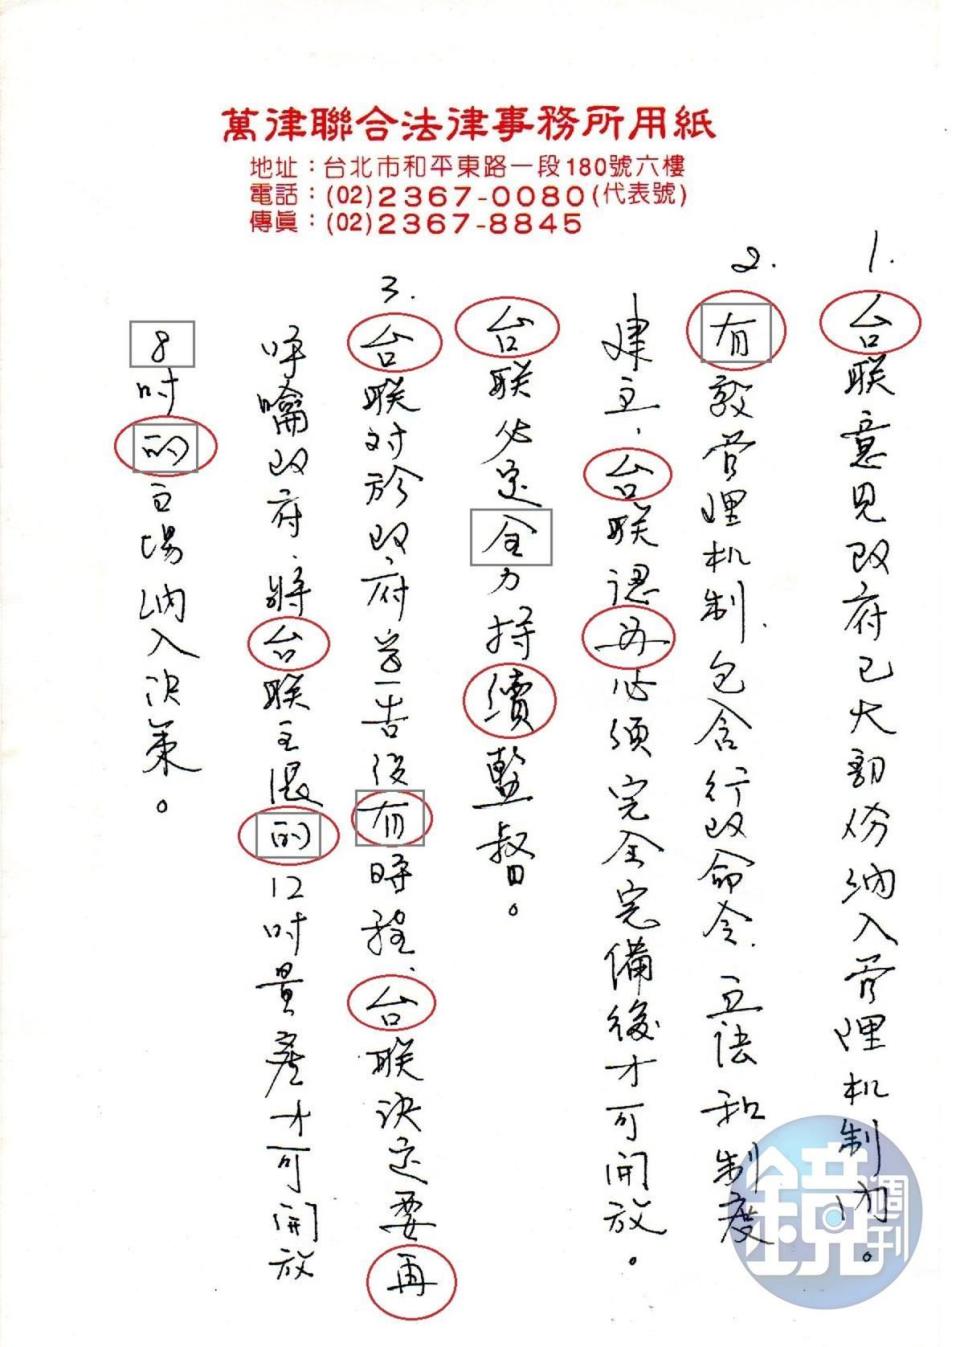 萬律聯合法律事務所用紙
地址：台北市和平東路一段180號六樓
電話：(02)2367-0080(代表號)
傳眞：(02)2367-8845
1.
台联意見政府已大部份納入管理机制內。
2.
有效管理机制.包含行政命令.立法和制度
建立，台联認為必須完全完備後才可開放。
台联必定全力持續監督。
3.
台联对於政府宣告沒有時程、台联決定要再
呼籲政府將台联主張的12吋量產才可開放
8吋的立場納入決策。
鏡週刊